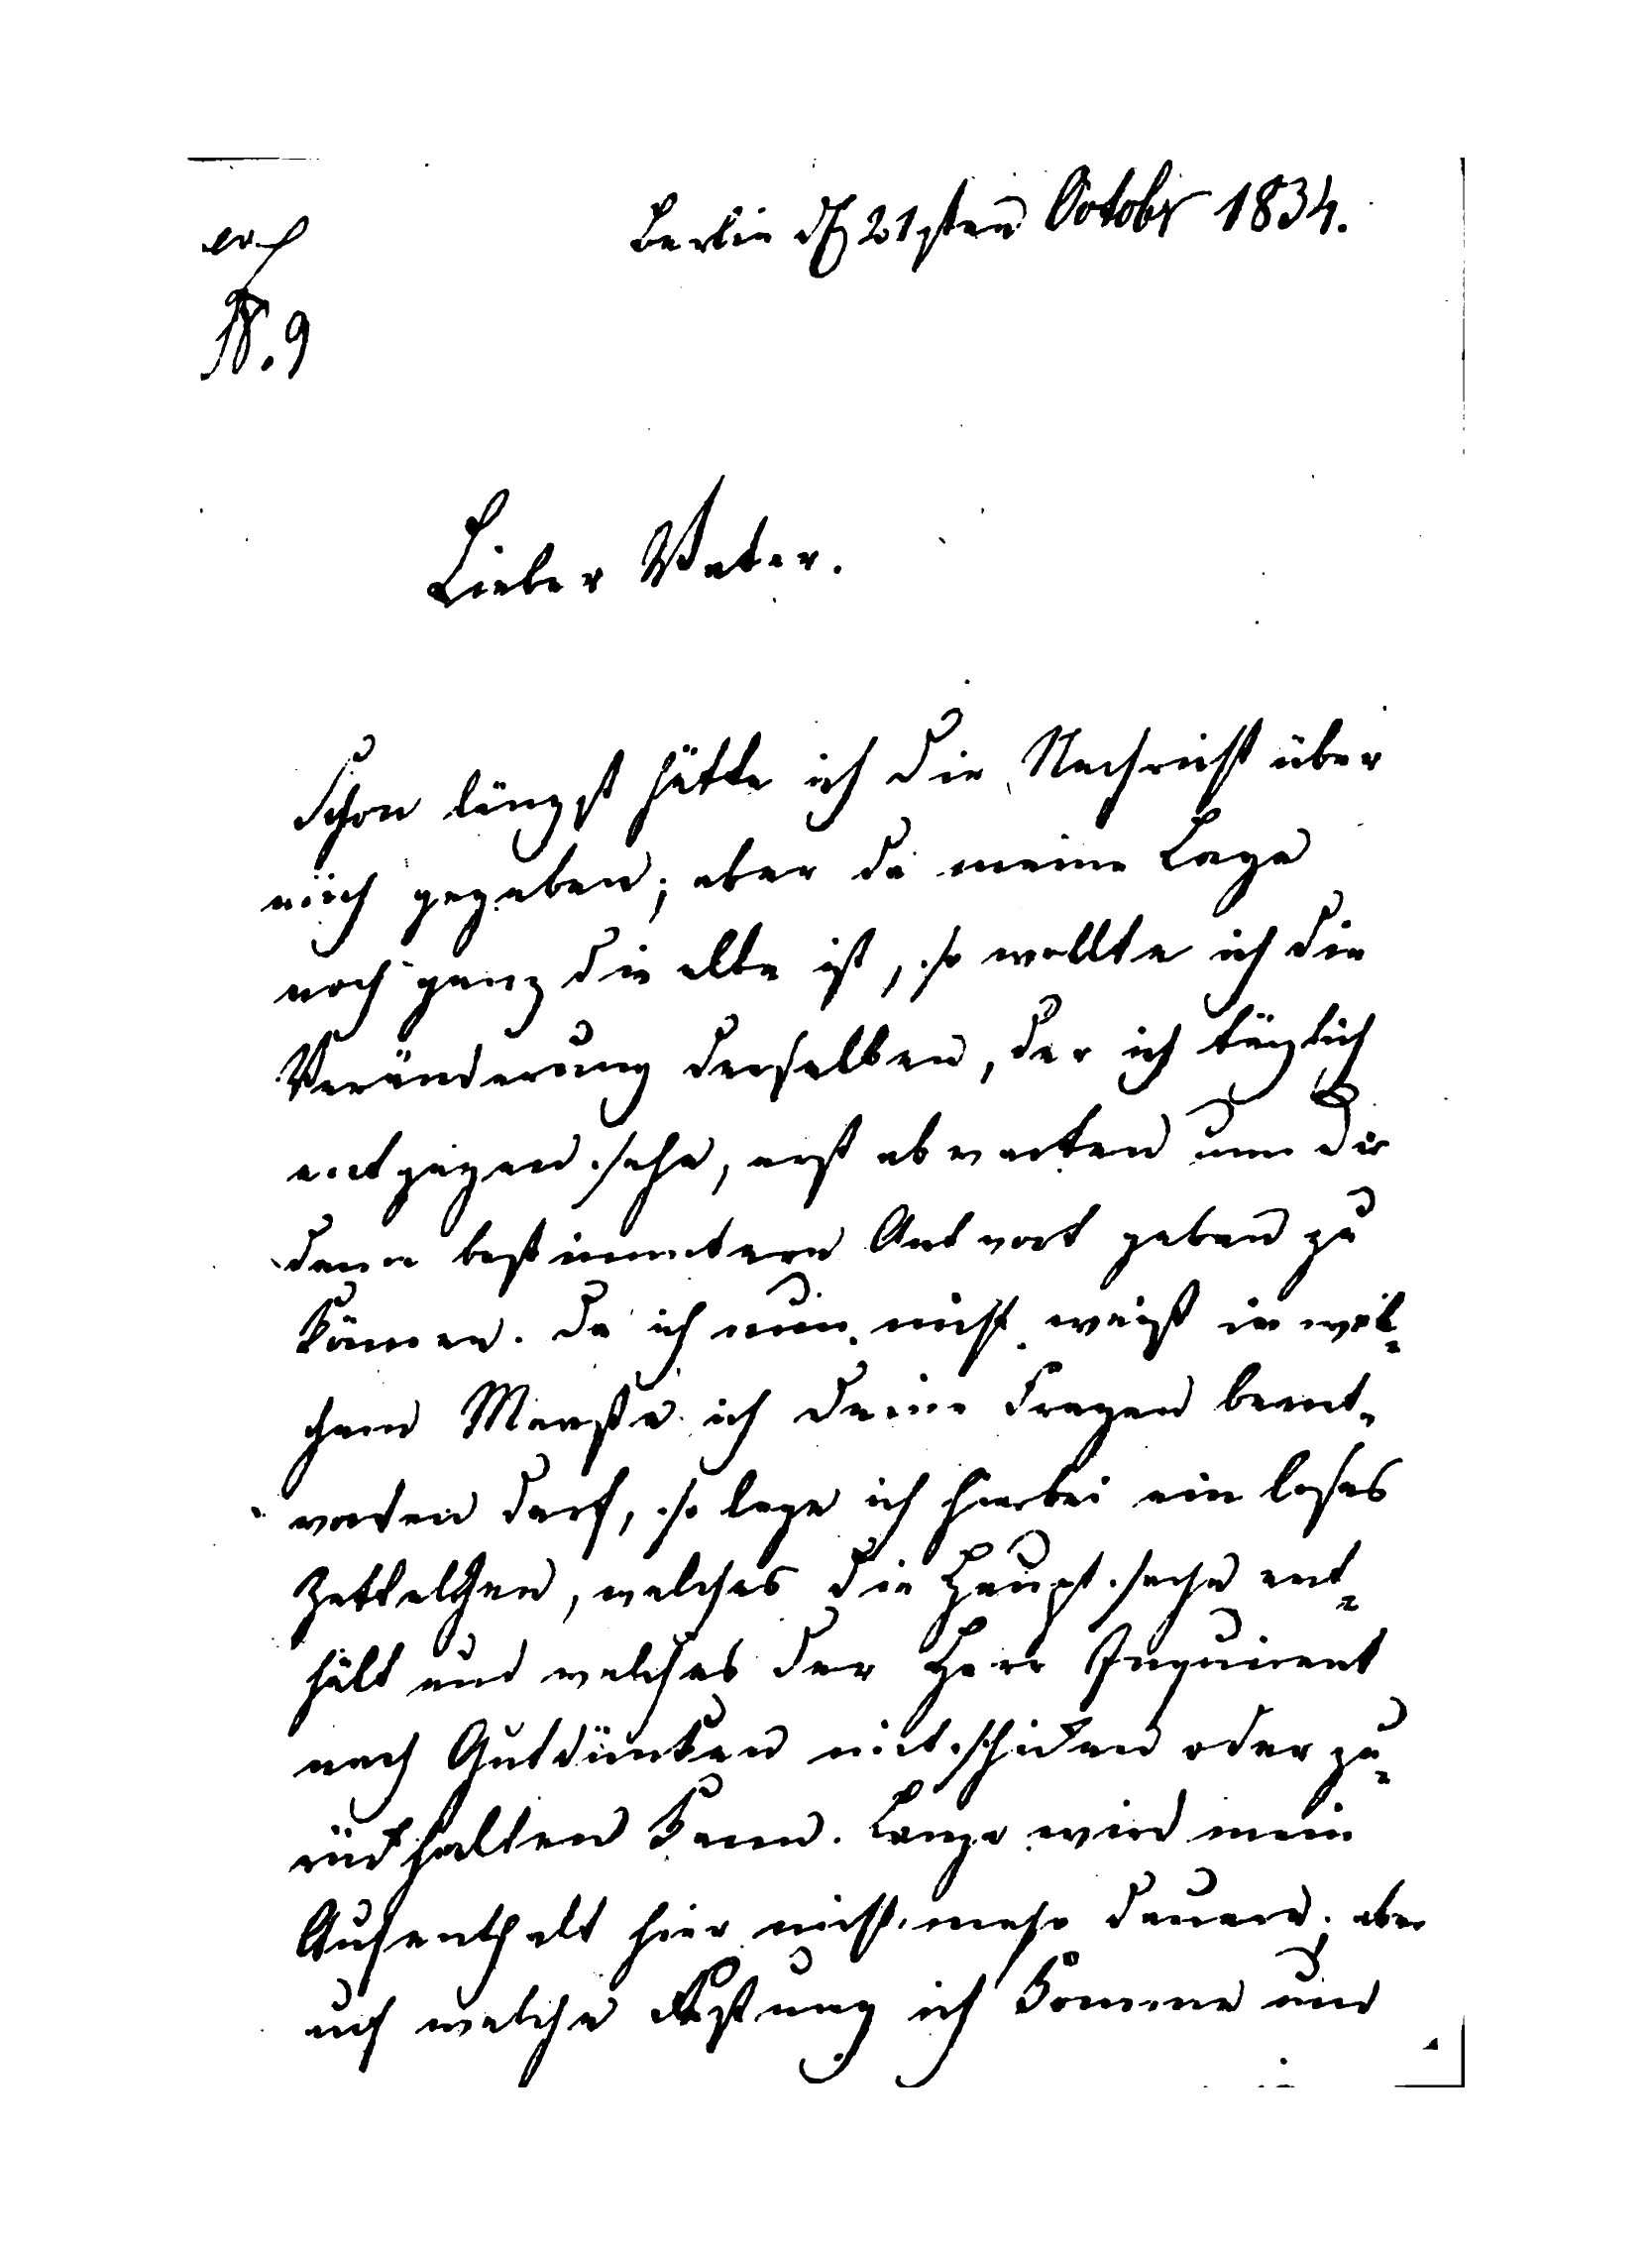 Berlin d 21sten Octobr 1834.
N. 9
Lieber Vater.
Schon längst hätte ich die Nachricht über
mich gegeben; aber da meine Lage
noch ganz die alte ist, so wollte ich die
Veränderung derselben, der ich täglich
entgegen sehe, erst abwarten um Dir
dann bestimmtere Antwort geben zu
können. Da ich nun nicht weiß in wel-
chem Maaße ich Deine Fragen beant-
worten darf, so lege ich hierbei ein loses
Zettelchen, welches die Hauptsache ent-
hält und welches der Herr Inquirent
nach Gutdünken mitschicken oder zu-
rückhalten kann. Lange wird mein
Aufenthalt hier nicht mehr dauern; aber
auf welche Festung ich komme und